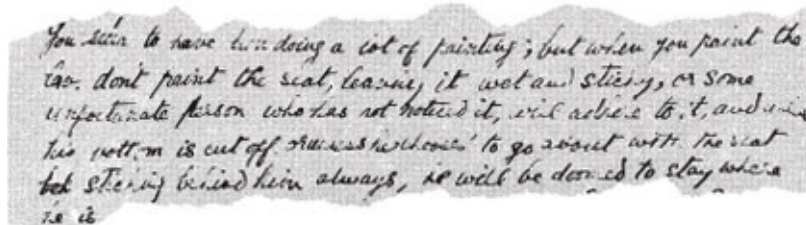 You seem to have been doing a lot of painting; but when you paint the
lav. don't paint the seat, leaving it wet and sticky, or some
unfortunate person who has not noticed it, will adhere to it, and unless
his bottom is cut off or unless he chooses to go about with the seat
sticking behind him always, he will be doomed to stay where
he is